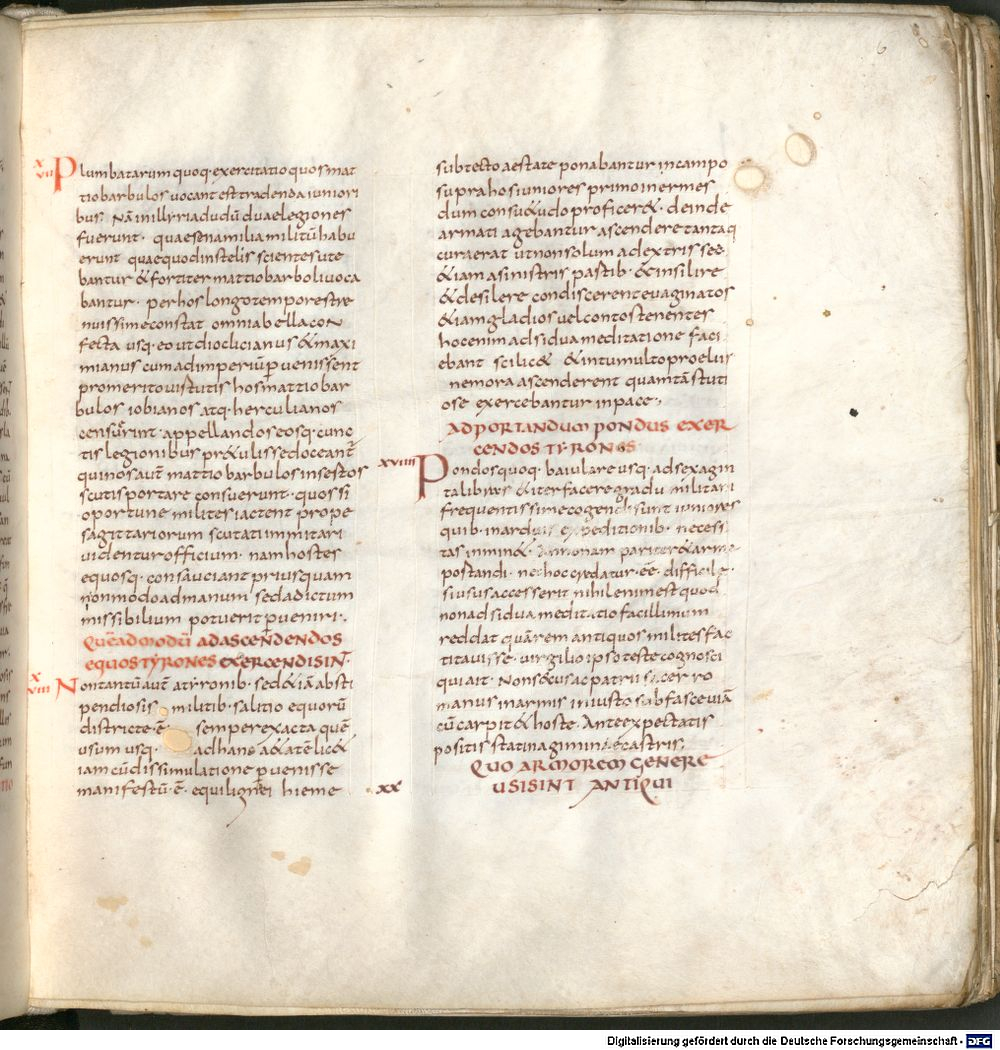 6
XVII Plumbatarum quoq· exercitatio quos mat
tiobarbulos vocant est tradenda iuniori
bus. Nā in illyria dudū duae legiones
fuerunt· quae sena milia militū habu
erunt quae quod in stelis scientes ute
bantur & fortiter mattiobarboli voca
bantur· per hos longo tempore stre
nuissime constat omnia bella con
fecta usq· eo ut dioclicianus & maxi
mianus cum ad imperiū pvenissent
pro merito virtutis hos mattiobar
bulos iobianos atq· herculianos
censuerint· appellandos eosq· cunc
tis legionibus prętulisse doceant̄
quinos aut̄ mattiobarbulos insestos
scutis portare consuerunt· quos si
oportune milites iactent prope
sagittariorum scutati immitari
videntur officium· nam hostes
equosq· consauciant priusquam
non modo ad manum sed ad ictum
missibilium potuerit pveniri·
QUĒADMODŪ AD ASCENDENDOS
EQUOS TYRONES EXERCENDI SIN̄·
XVIII Non tantū aut̄ a tyronib· sed & iā absti
pendiosis militib· salitio equorū
districte· ē· semper exacta quē
usum usq· ad hanc a&atē lic&
iam cū dissimulatione pvenisse
manifestū· ē· equi lignei hieme
sub tecto aestate ponabantur in campo
supra hos iuniores primo inermes
dum consu&udo proficer&· deinde
armati agebantur ascendere tantaq
cura erat ut non solum a dextris sed
& iam a sinistris pastib· & insilire
& desilere condiscerent evaginatos
& iam gladios vel contos tenentes
hoc enim adsidua meditatione faci
ebant scilic& & in tumulto proeliis
nemora ascenderent quam tā studi
ose exercebantur in pace·,
AD PORTANDUM PONDUS EXER
CENDOS TYRONES·
XVIIII Pondos quoq· baiulare usq· ad sexagin
ta libras & iter facere gradu militari
frequentissime cogendi sunt iuniores
quib· in arduis expeditionib· necessi
tas inmin& annonam pariter & arma
postandi· ne hoc credatur· ēē· difficile·
si usus accesserit nihil enim est quod
non adsidua meditatio facillimum
reddat quā rem antiquos milites fac
titavisse· virgilio ipso teste cognosci
qui ait· Non s&us ac patriis acer ro
manus in armis iniusto sub fasce viā
cū carpit & hoste· Ante expectatis
positis stat in agmini· ē castris·,
XX QUO ARMOREM GENERE
USI SINT ANTIQUI
Digitalisierung gefördert durch die Deutsche Forschungsgemeinschaft - DFG